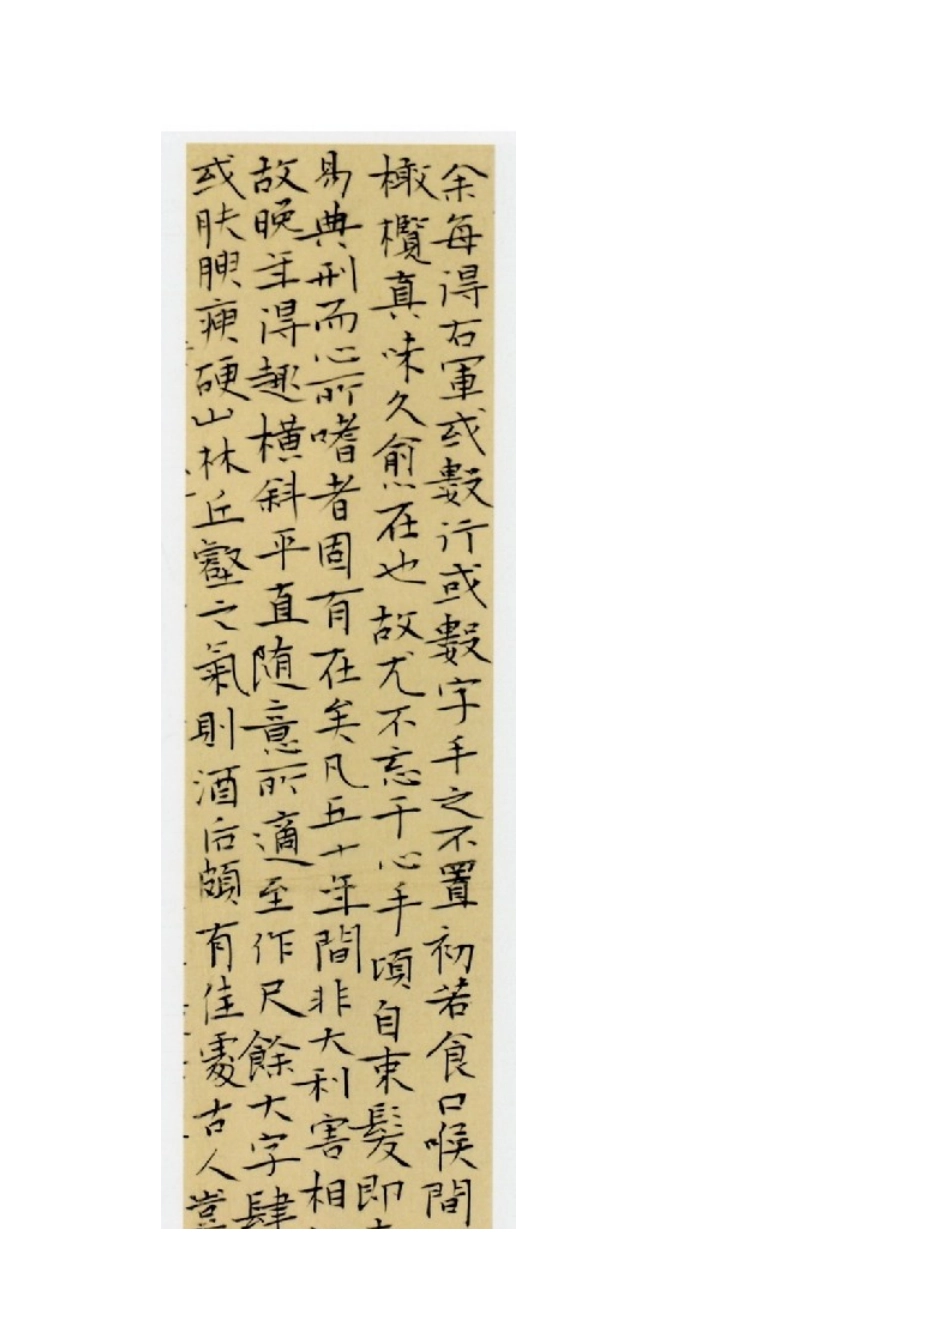 余每得右軍或數行或數字手之不置初若食口喉間
橄欖真味久愈在也故尤不忘于心手頃自束髮即
易典刑而心所嗜者固有在矣凡五十年間非大利害相
故晚年得趣橫斜平直随意所適至作尺餘大字肆
或膚腴瘦硬山林丘壑之氣則酒后頗有佳處古人